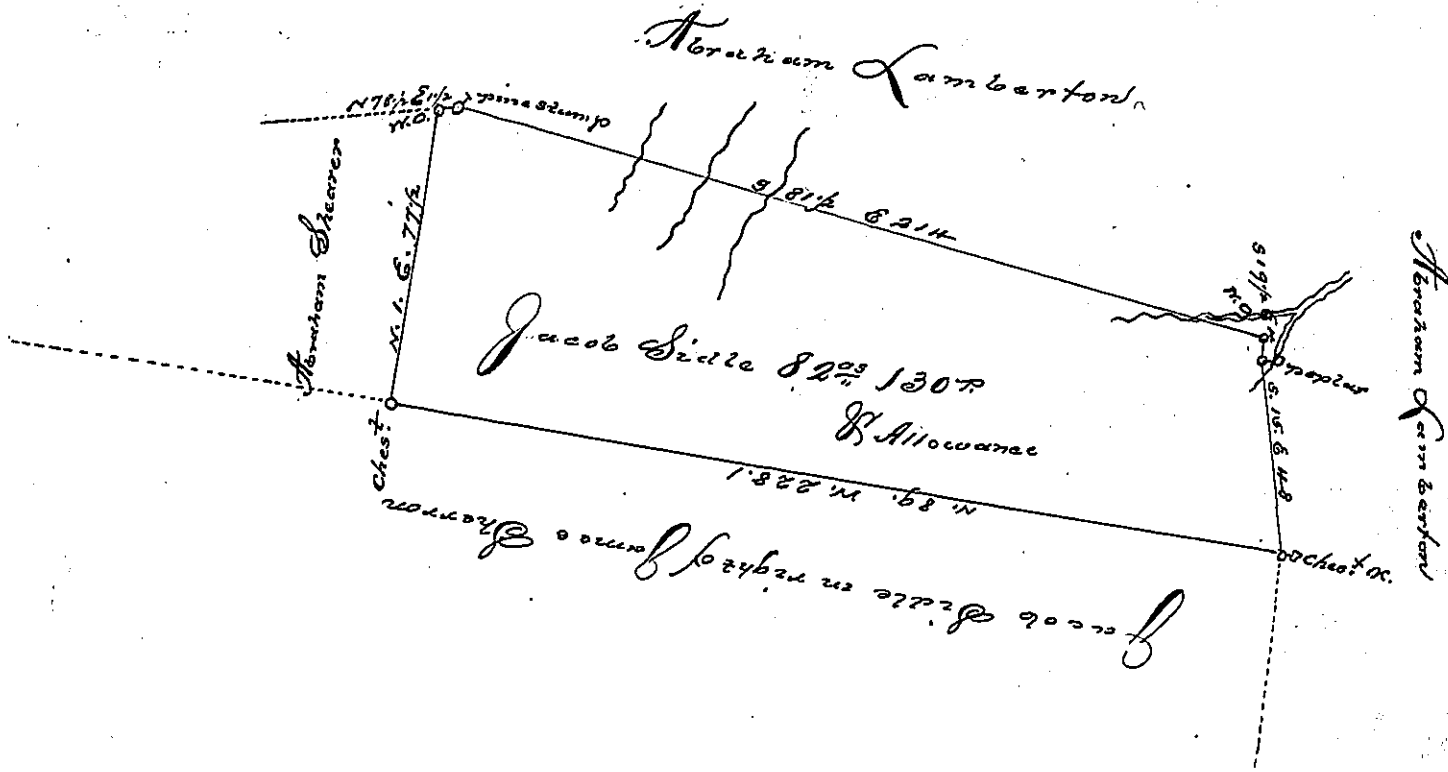 Abraham Lamberton
N 78 1/2 E 1 1/2
pine stump
W.O.
Abraham Shearer
N. 1. E. 77 1/2
S 81 1/2 E 214
S 19 1/2 E
W.O.
poplar
Abraham Lamberton
Jacob Sidle 82as 130 P
& Allowance
S. 15. E 48
Ches.t
N. 89. W. 228.1
Ches.t OK.
Jacob Sidle in right of James Sharron